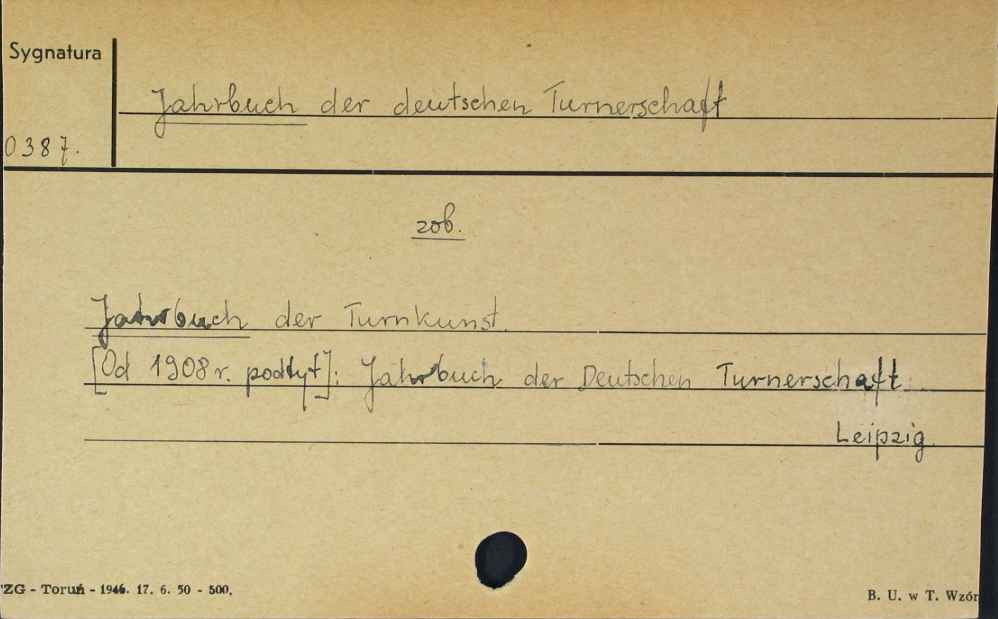 Sygnatura
Jahrbuch der deutschen Turnerschaft
0387.
zob.
Jahrbuch der Turnkunst.
[Od 1908 r. podtyt]: Jahrbuch der Deutschen Turnerschaft.
Leipzig.
ZG - Toruń - 1946. 17. 6. 50 - 500.
B. U. w T. Wzór